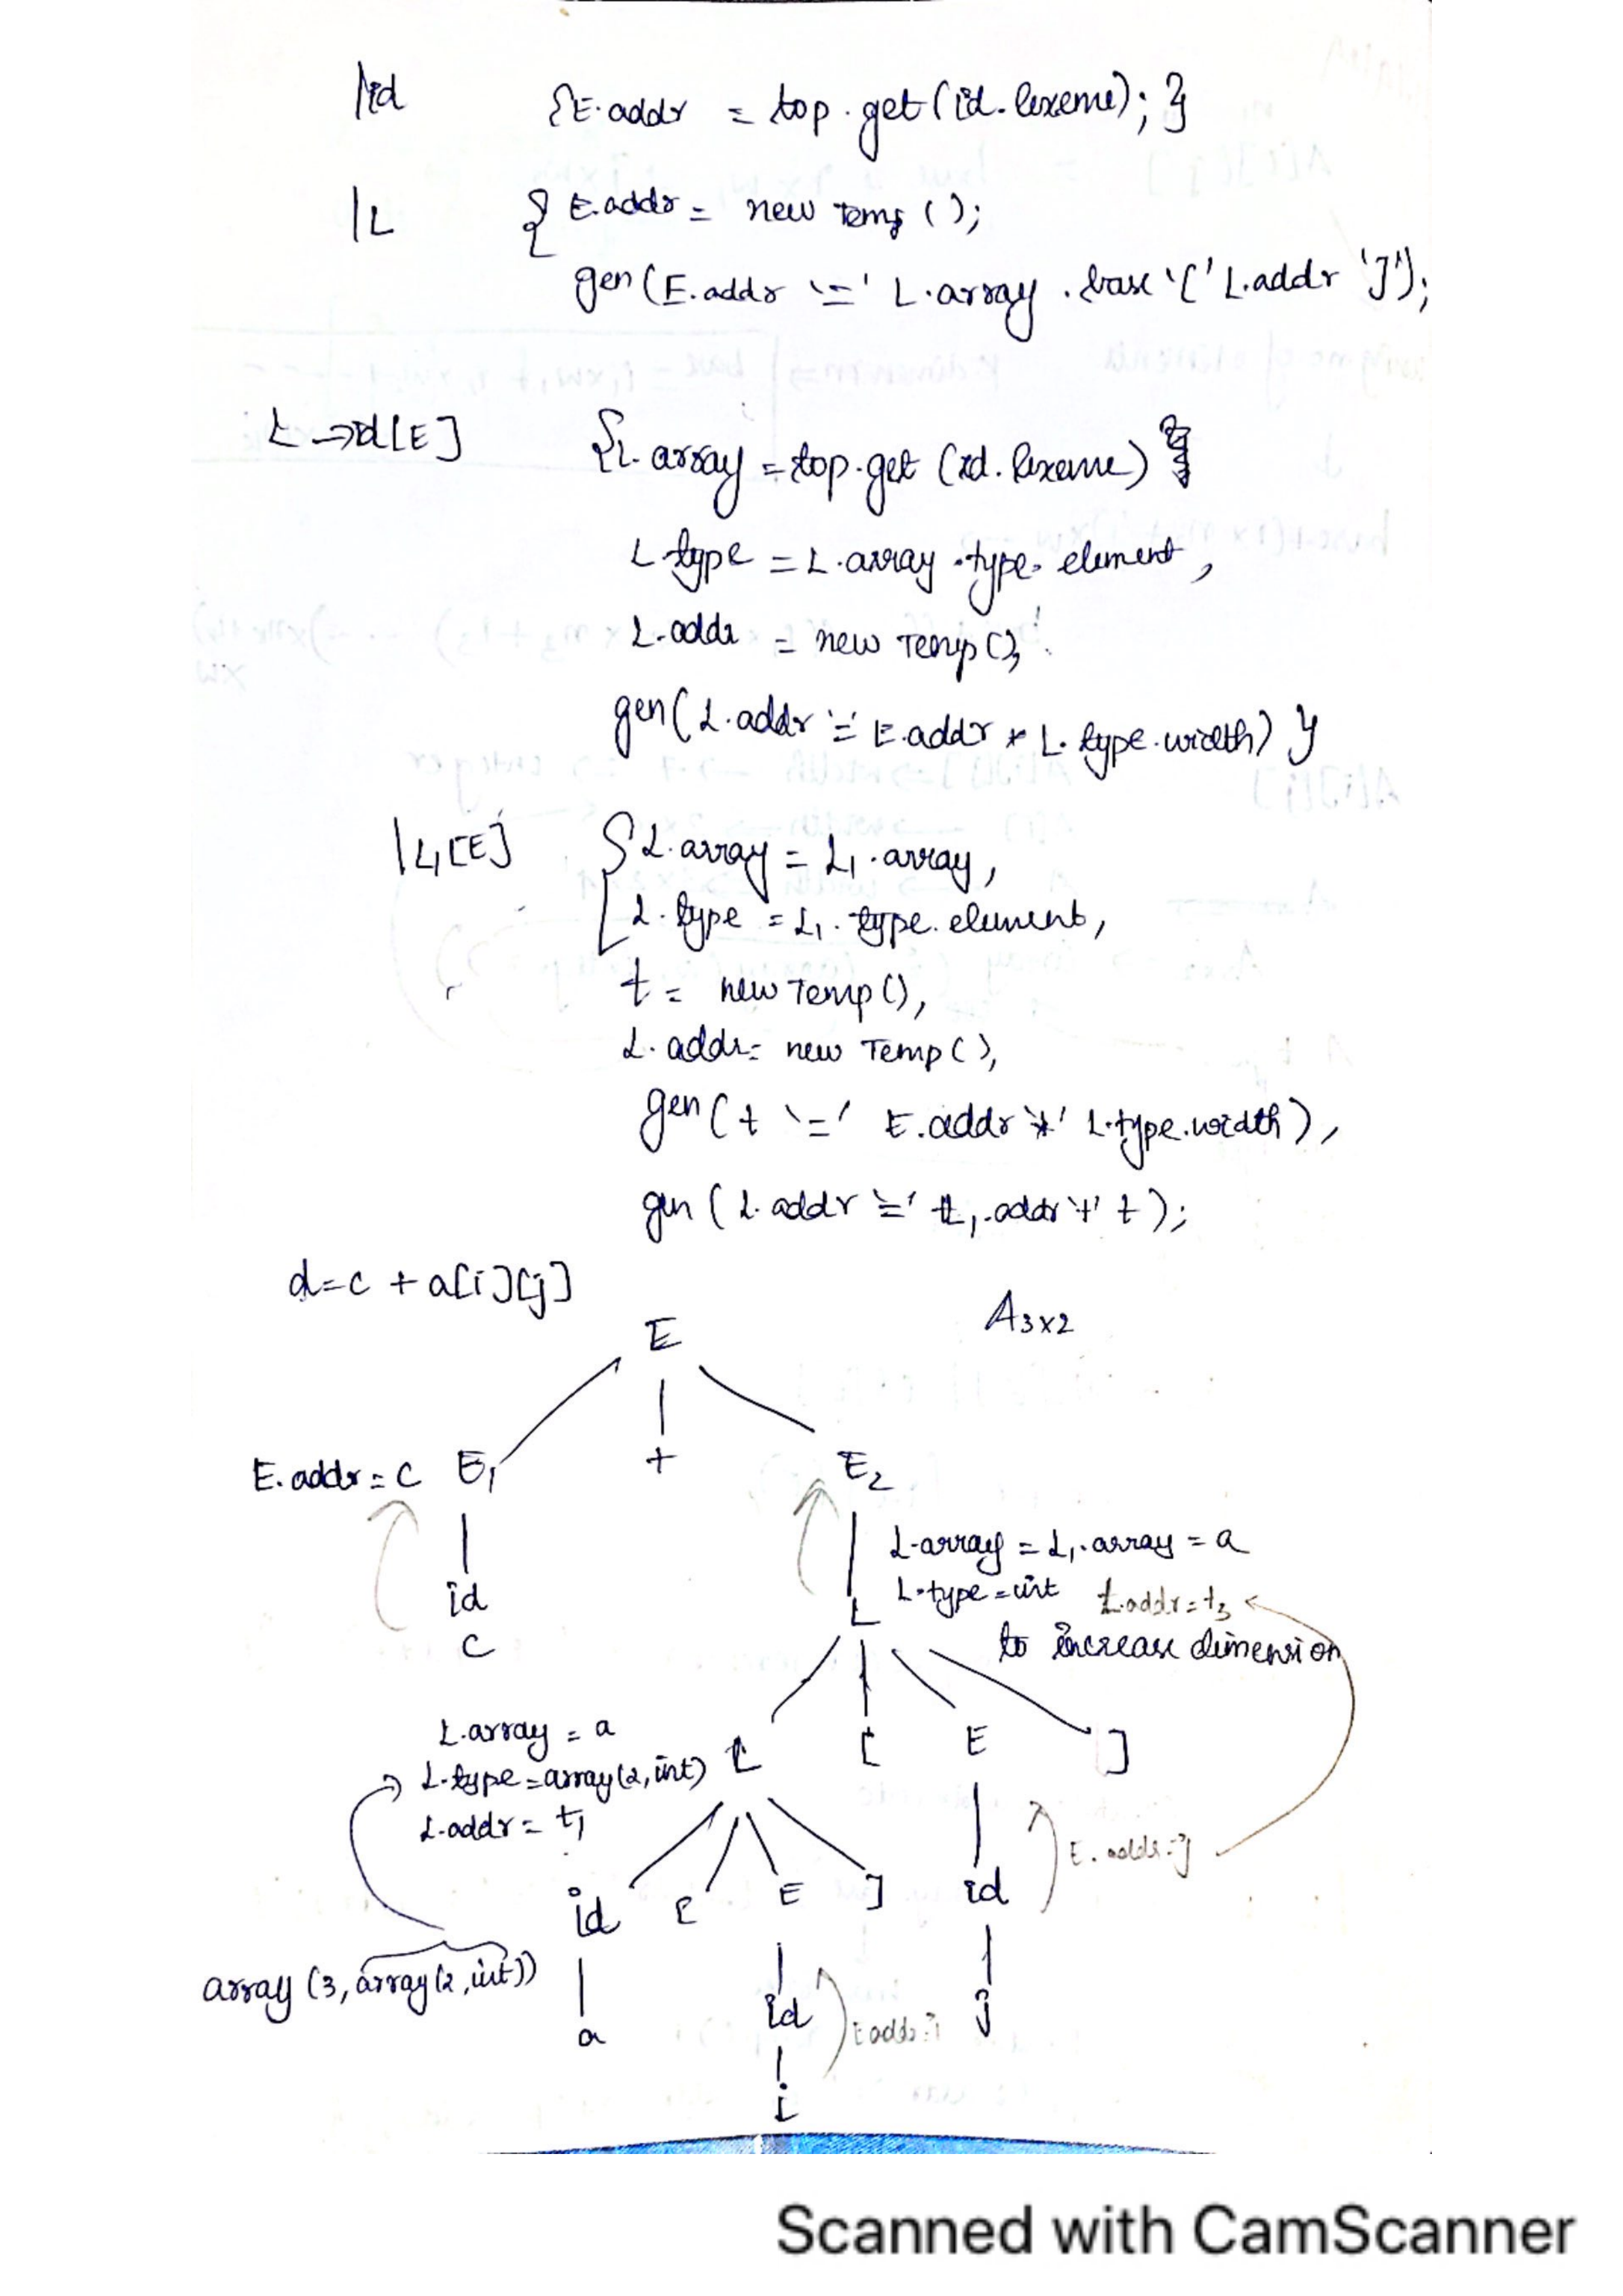 |id {E.addr = top.get(id.lexeme); }
|L { E.addr = new Temp ();
gen(E.addr '=' L.array .base '[' L.addr ']');
L → id[E] {L.array = top.get (id.lexeme)
L.type = L.array.type.element,
L.addr = new Temp();
gen(L.addr '=' E.addr * L.type.width) }
|L₁[E] { L.array = L₁.array,
L.type = L₁.type.element,
t = new Temp(),
L.addr = new Temp(),
gen(t '=' E.addr '*' L.type.width),
gen(L.addr '=' L₁.addr '+' t);
d=c + a[i][j]
A3x2
E
E.addr = c E₁ + E₂
L.array = L₁.array = a
id L.type = int L.addr = t₃
L
c to increase dimension
L.array = a
L [ E ]
L.type = array(2, int)
L.addr = t₁
E.addr = j
id [ E ] id
array (3, array(2, int))
a id j
E.addr = i
i
Scanned with CamScanner